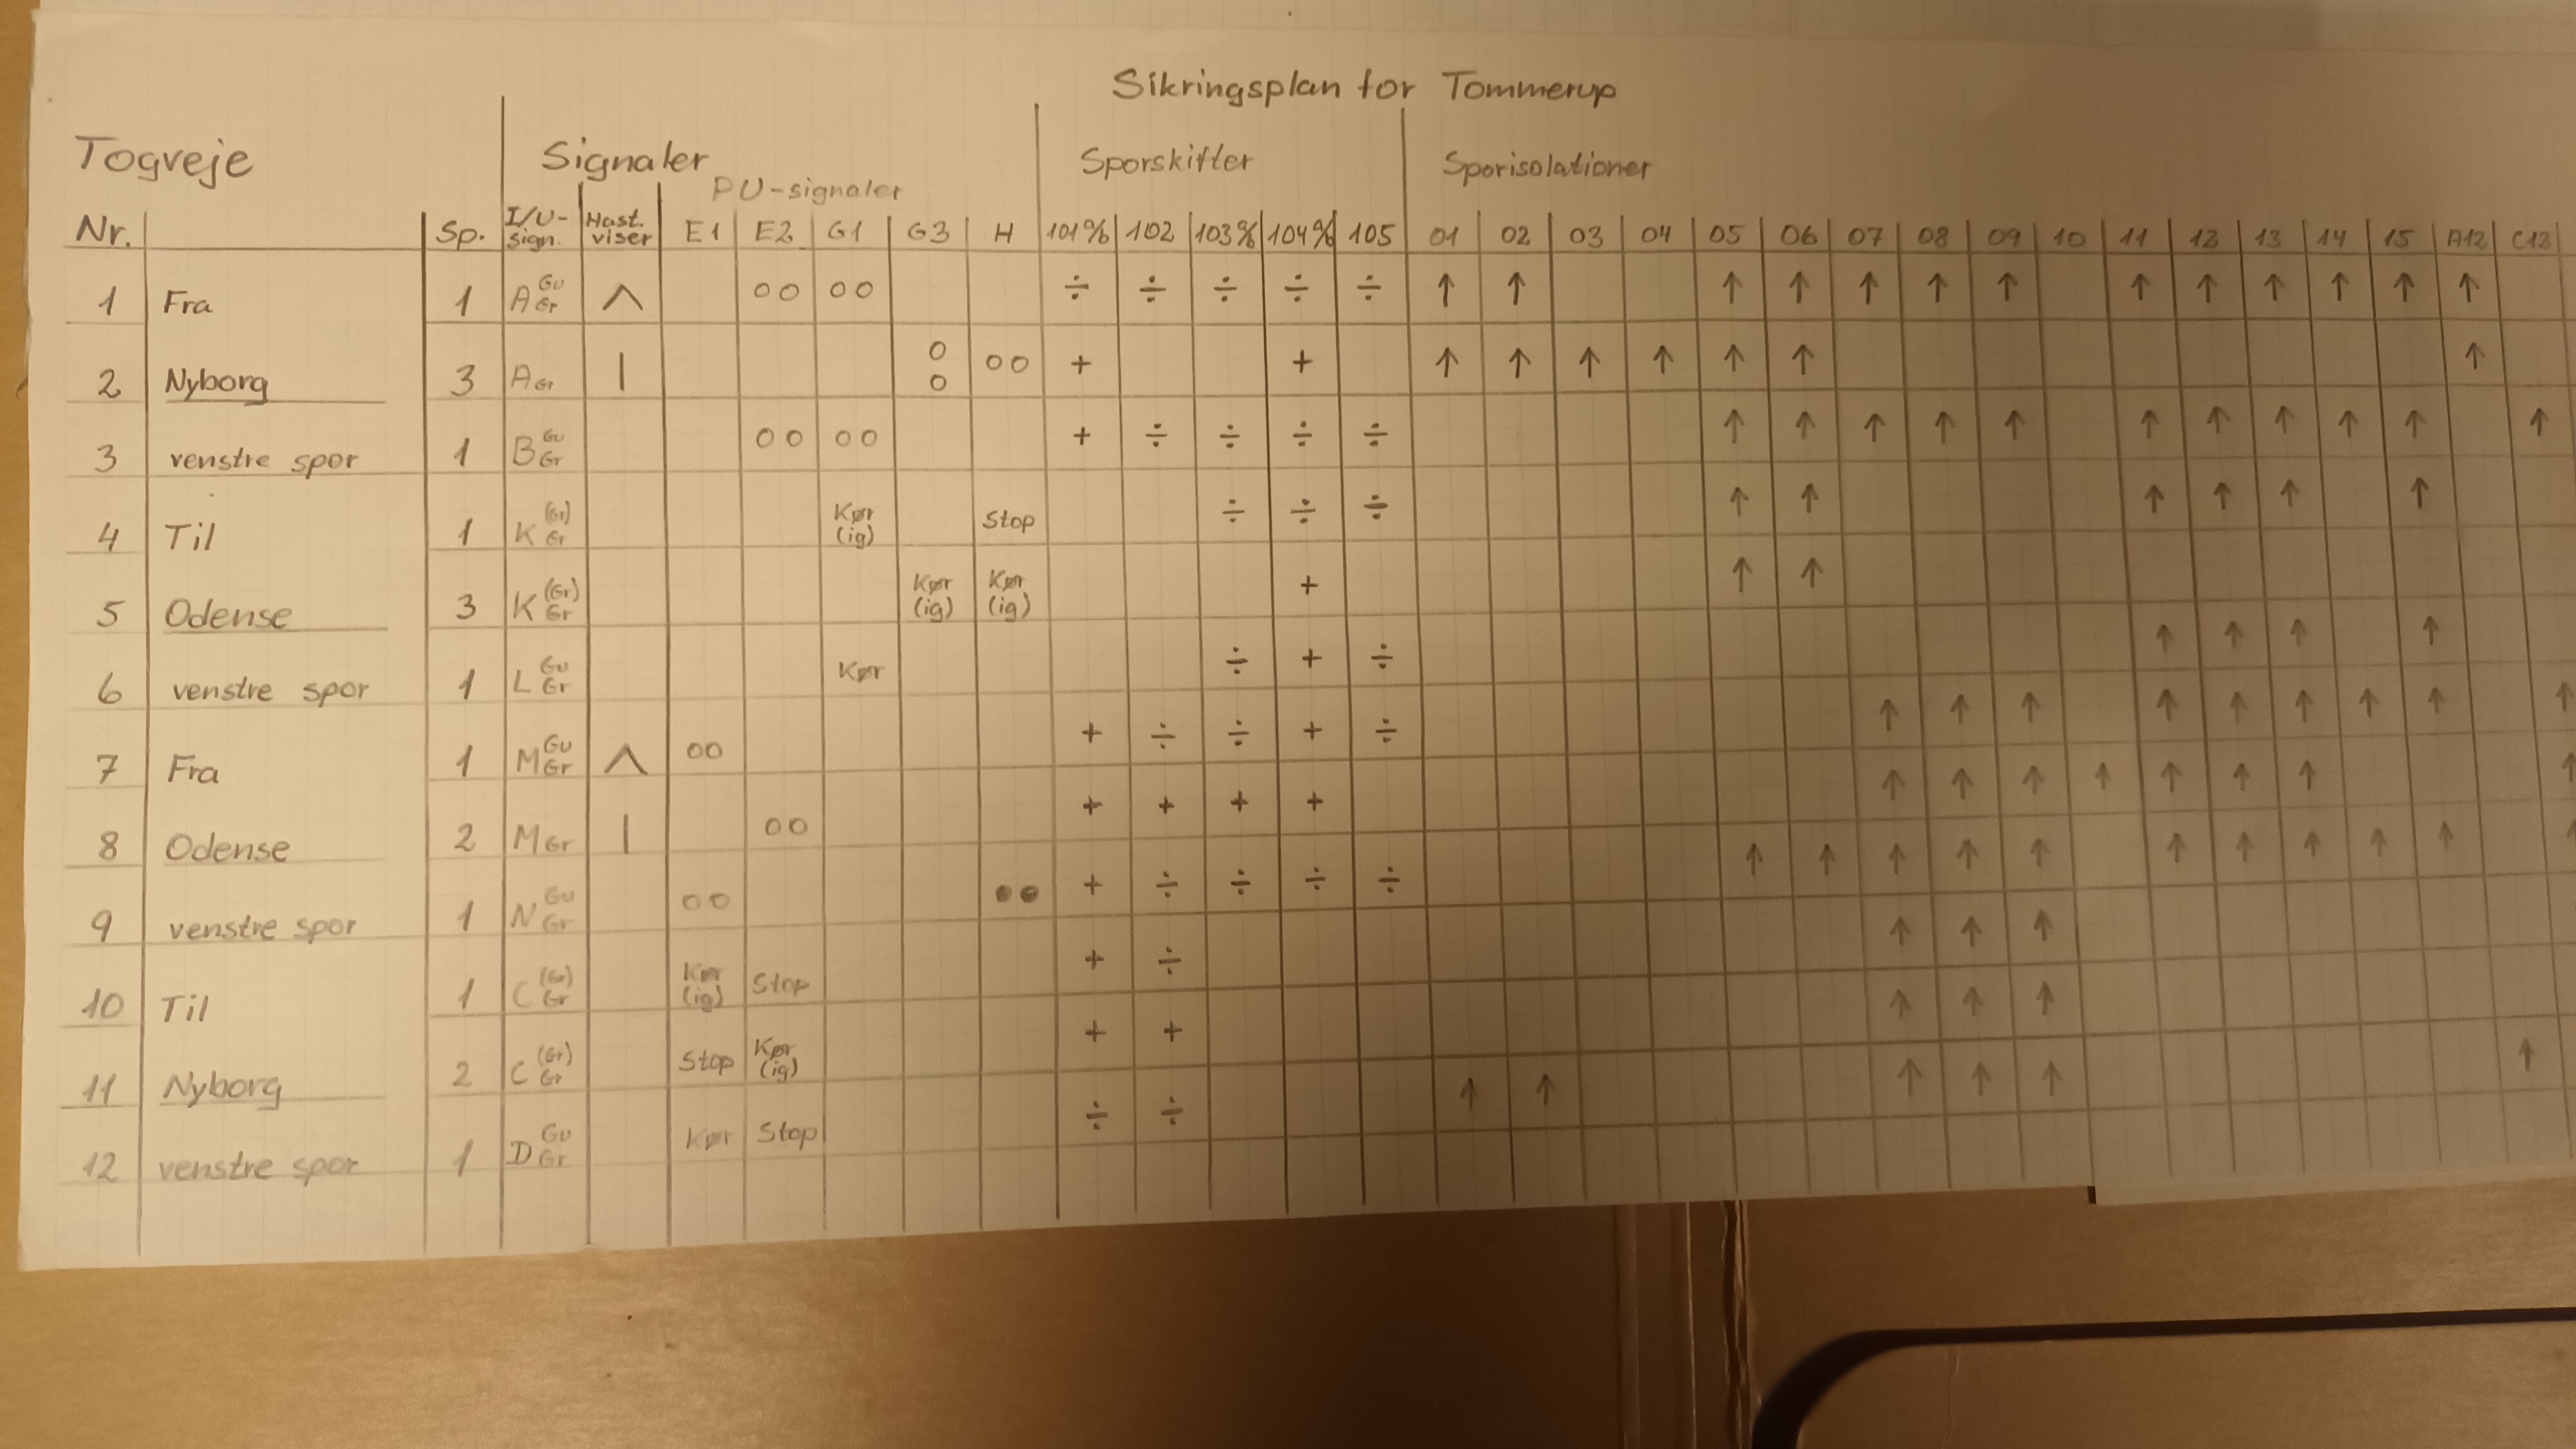 Sikringsplan for Tommerup
Togveje Signaler Sporskifter Sporisolationer
PU-signaler
Nr. Sp. I/U-sign. Hast.viser E1 E2 G1 G3 H 101% 102 103% 104% 105 01 02 03 04 05 06 07 08 09 10 11 12 13 14 15 A12 C12
1 Fra 1 A Gu Gr ∧ oo oo ÷ ÷ ÷ ÷ ÷ ↑ ↑ ↑ ↑ ↑ ↑ ↑ ↑ ↑ ↑ ↑ ↑ ↑
2 Nyborg 3 A Gr | o o oo + + ↑ ↑ ↑ ↑ ↑ ↑ ↑
3 venstre spor 1 B Gu Gr oo oo + ÷ ÷ ÷ ÷ ↑ ↑ ↑ ↑ ↑ ↑ ↑ ↑ ↑ ↑ ↑
4 Til 1 K (Gr) Gr Kør (ig) Stop ÷ ÷ ÷ ↑ ↑ ↑ ↑ ↑ ↑
5 Odense 3 K (Gr) Gr Kør (ig) Kør (ig) + ↑ ↑
6 venstre spor 1 L Gu Gr Kør ÷ + ÷ ↑ ↑ ↑ ↑
7 Fra 1 M Gu Gr ∧ oo + ÷ ÷ + ÷ ↑ ↑ ↑ ↑ ↑ ↑ ↑ ↑ ↑
8 Odense 2 M Gr | oo + + + + ↑ ↑ ↑ ↑ ↑ ↑ ↑ ↑
9 venstre spor 1 N Gu Gr oo ●● + ÷ ÷ ÷ ÷ ↑ ↑ ↑ ↑ ↑ ↑ ↑ ↑ ↑ ↑ ↑
10 Til 1 C (Gr) Gr Kør (ig) Stop + ÷ ↑ ↑ ↑
11 Nyborg 2 C (Gr) Gr Stop Kør (ig) + + ↑ ↑ ↑
12 venstre spor 1 D Gu Gr Kør Stop ÷ ÷ ↑ ↑ ↑ ↑ ↑ ↑